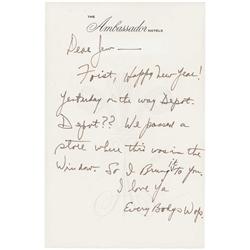 THE
Ambassador
HOTELS
Dear Jew —
Foist, Happy New Year!
Yesterday on the way Depot.
Depot?? We passed a
store where this was in the
Window. So I Brung it to you.
I love ya
Every Bodys Wop.